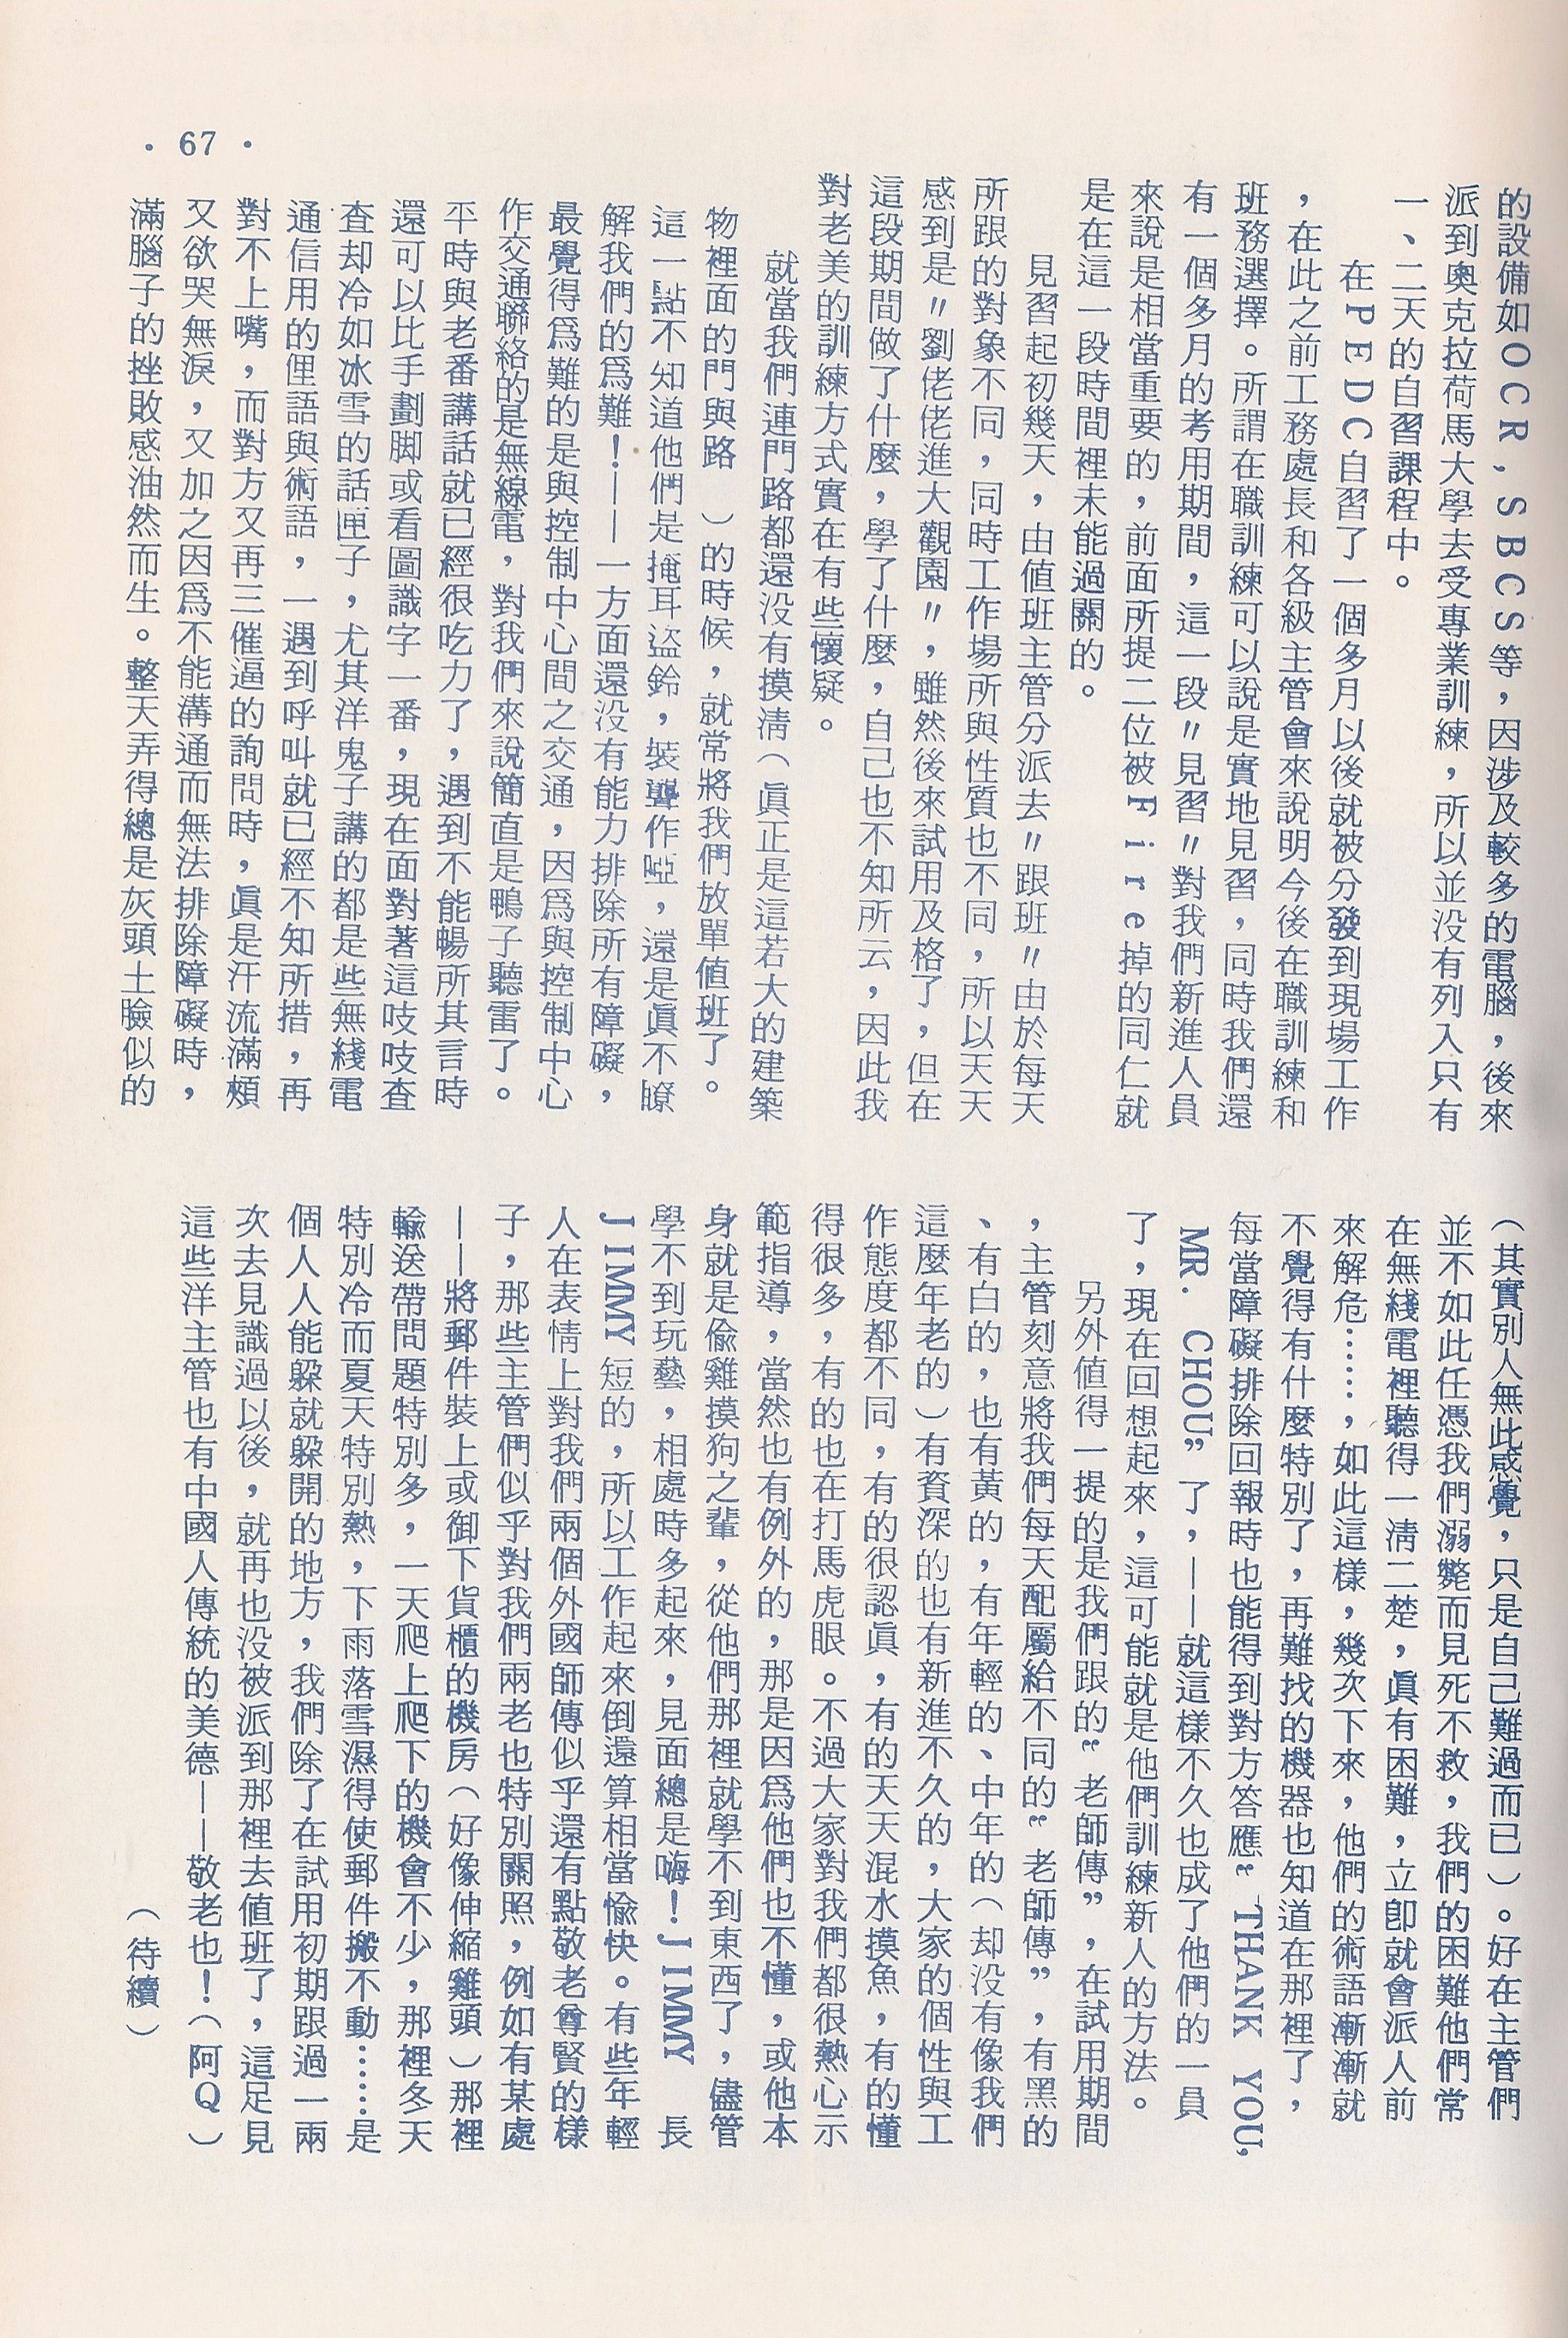 · 67 ·
的設備如OCR，SBCS等，因涉及較多的電腦，後來
派到奧克拉荷馬大學去受專業訓練，所以並没有列入只有
一、二天的自習課程中。
在PEDC自習了一個多月以後就被分發到現場工作
，在此之前工務處長和各級主管會來說明今後在職訓練和
班務選擇。所謂在職訓練可以說是實地見習，同時我們還
有一個多月的考用期間，這一段〃見習〃對我們新進人員
來說是相當重要的，前面所提二位被Fire掉的同仁就
是在這一段時間裡未能過關的。
見習起初幾天，由值班主管分派去〃跟班〃由於每天
所跟的對象不同，同時工作場所與性質也不同，所以天天
感到是〃劉佬佬進大觀園〃，雖然後來試用及格了，但在
這段期間做了什麼，學了什麼，自己也不知所云，因此我
對老美的訓練方式實在有些懷疑。
就當我們連門路都還没有摸淸（眞正是這若大的建築
物裡面的門與路　）的時候，就常將我們放單值班了。
這一點不知道他們是掩耳盜鈴，裝聾作啞，還是眞不瞭
解我們的爲難！——一方面還没有能力排除所有障礙，
最覺得爲難的是與控制中心間之交通，因爲與控制中心
作交通聯絡的是無線電，對我們來說簡直是鴨子聽雷了。
平時與老番講話就已經很吃力了，遇到不能暢所其言時
還可以比手劃脚或看圖識字一番，現在面對著這吱吱査
査却冷如冰雪的話匣子，尤其洋鬼子講的都是些無綫電
通信用的俚語與術語，一遇到呼叫就已經不知所措，再
對不上嘴，而對方又再三催逼的詢問時，眞是汗流滿頰
又欲哭無淚，又加之因爲不能溝通而無法排除障礙時，
滿腦子的挫敗感油然而生。整天弄得總是灰頭土臉似的
（其實別人無此感覺，只是自己難過而已）。好在主管們
並不如此任憑我們溺斃而見死不救，我們的困難他們常
在無綫電裡聽得一淸二楚，眞有困難，立卽就會派人前
來解危……，如此這樣，幾次下來，他們的術語漸漸就
不覺得有什麼特別了，再難找的機器也知道在那裡了，
每當障礙排除回報時也能得到對方答應“THANK YOU,
MR. CHOU”了，——就這樣不久也成了他們的一員
了，現在回想起來，這可能就是他們訓練新人的方法。
另外值得一提的是我們跟的“老師傳”，在試用期間
，主管刻意將我們每天配屬給不同的“老師傳”，有黑的
、有白的，也有黃的，有年輕的、中年的（却没有像我們
這麼年老的）有資深的也有新進不久的，大家的個性與工
作態度都不同，有的很認眞，有的天天混水摸魚，有的懂
得很多，有的也在打馬虎眼。不過大家對我們都很熱心示
範指導，當然也有例外的，那是因爲他們也不懂，或他本
身就是偸雞摸狗之輩，從他們那裡就學不到東西了，儘管
學不到玩藝，相處時多起來，見面總是嗨！JIMMY 長
JIMMY 短的，所以工作起來倒還算相當愉快。有些年輕
人在表情上對我們兩個外國師傳似乎還有點敬老尊賢的樣
子，那些主管們似乎對我們兩老也特別關照，例如有某處
——將郵件裝上或御下貨櫃的機房（好像伸縮雞頭）那裡
輸送帶問題特別多，一天爬上爬下的機會不少，那裡冬天
特別冷而夏天特別熱，下雨落雪濕得使郵件搬不動……是
個人人能躱就躱開的地方，我們除了在試用初期跟過一兩
次去見識過以後，就再也没被派到那裡去値班了，這足見
這些洋主管也有中國人傳統的美德——敬老也！（阿Q）
（待續）